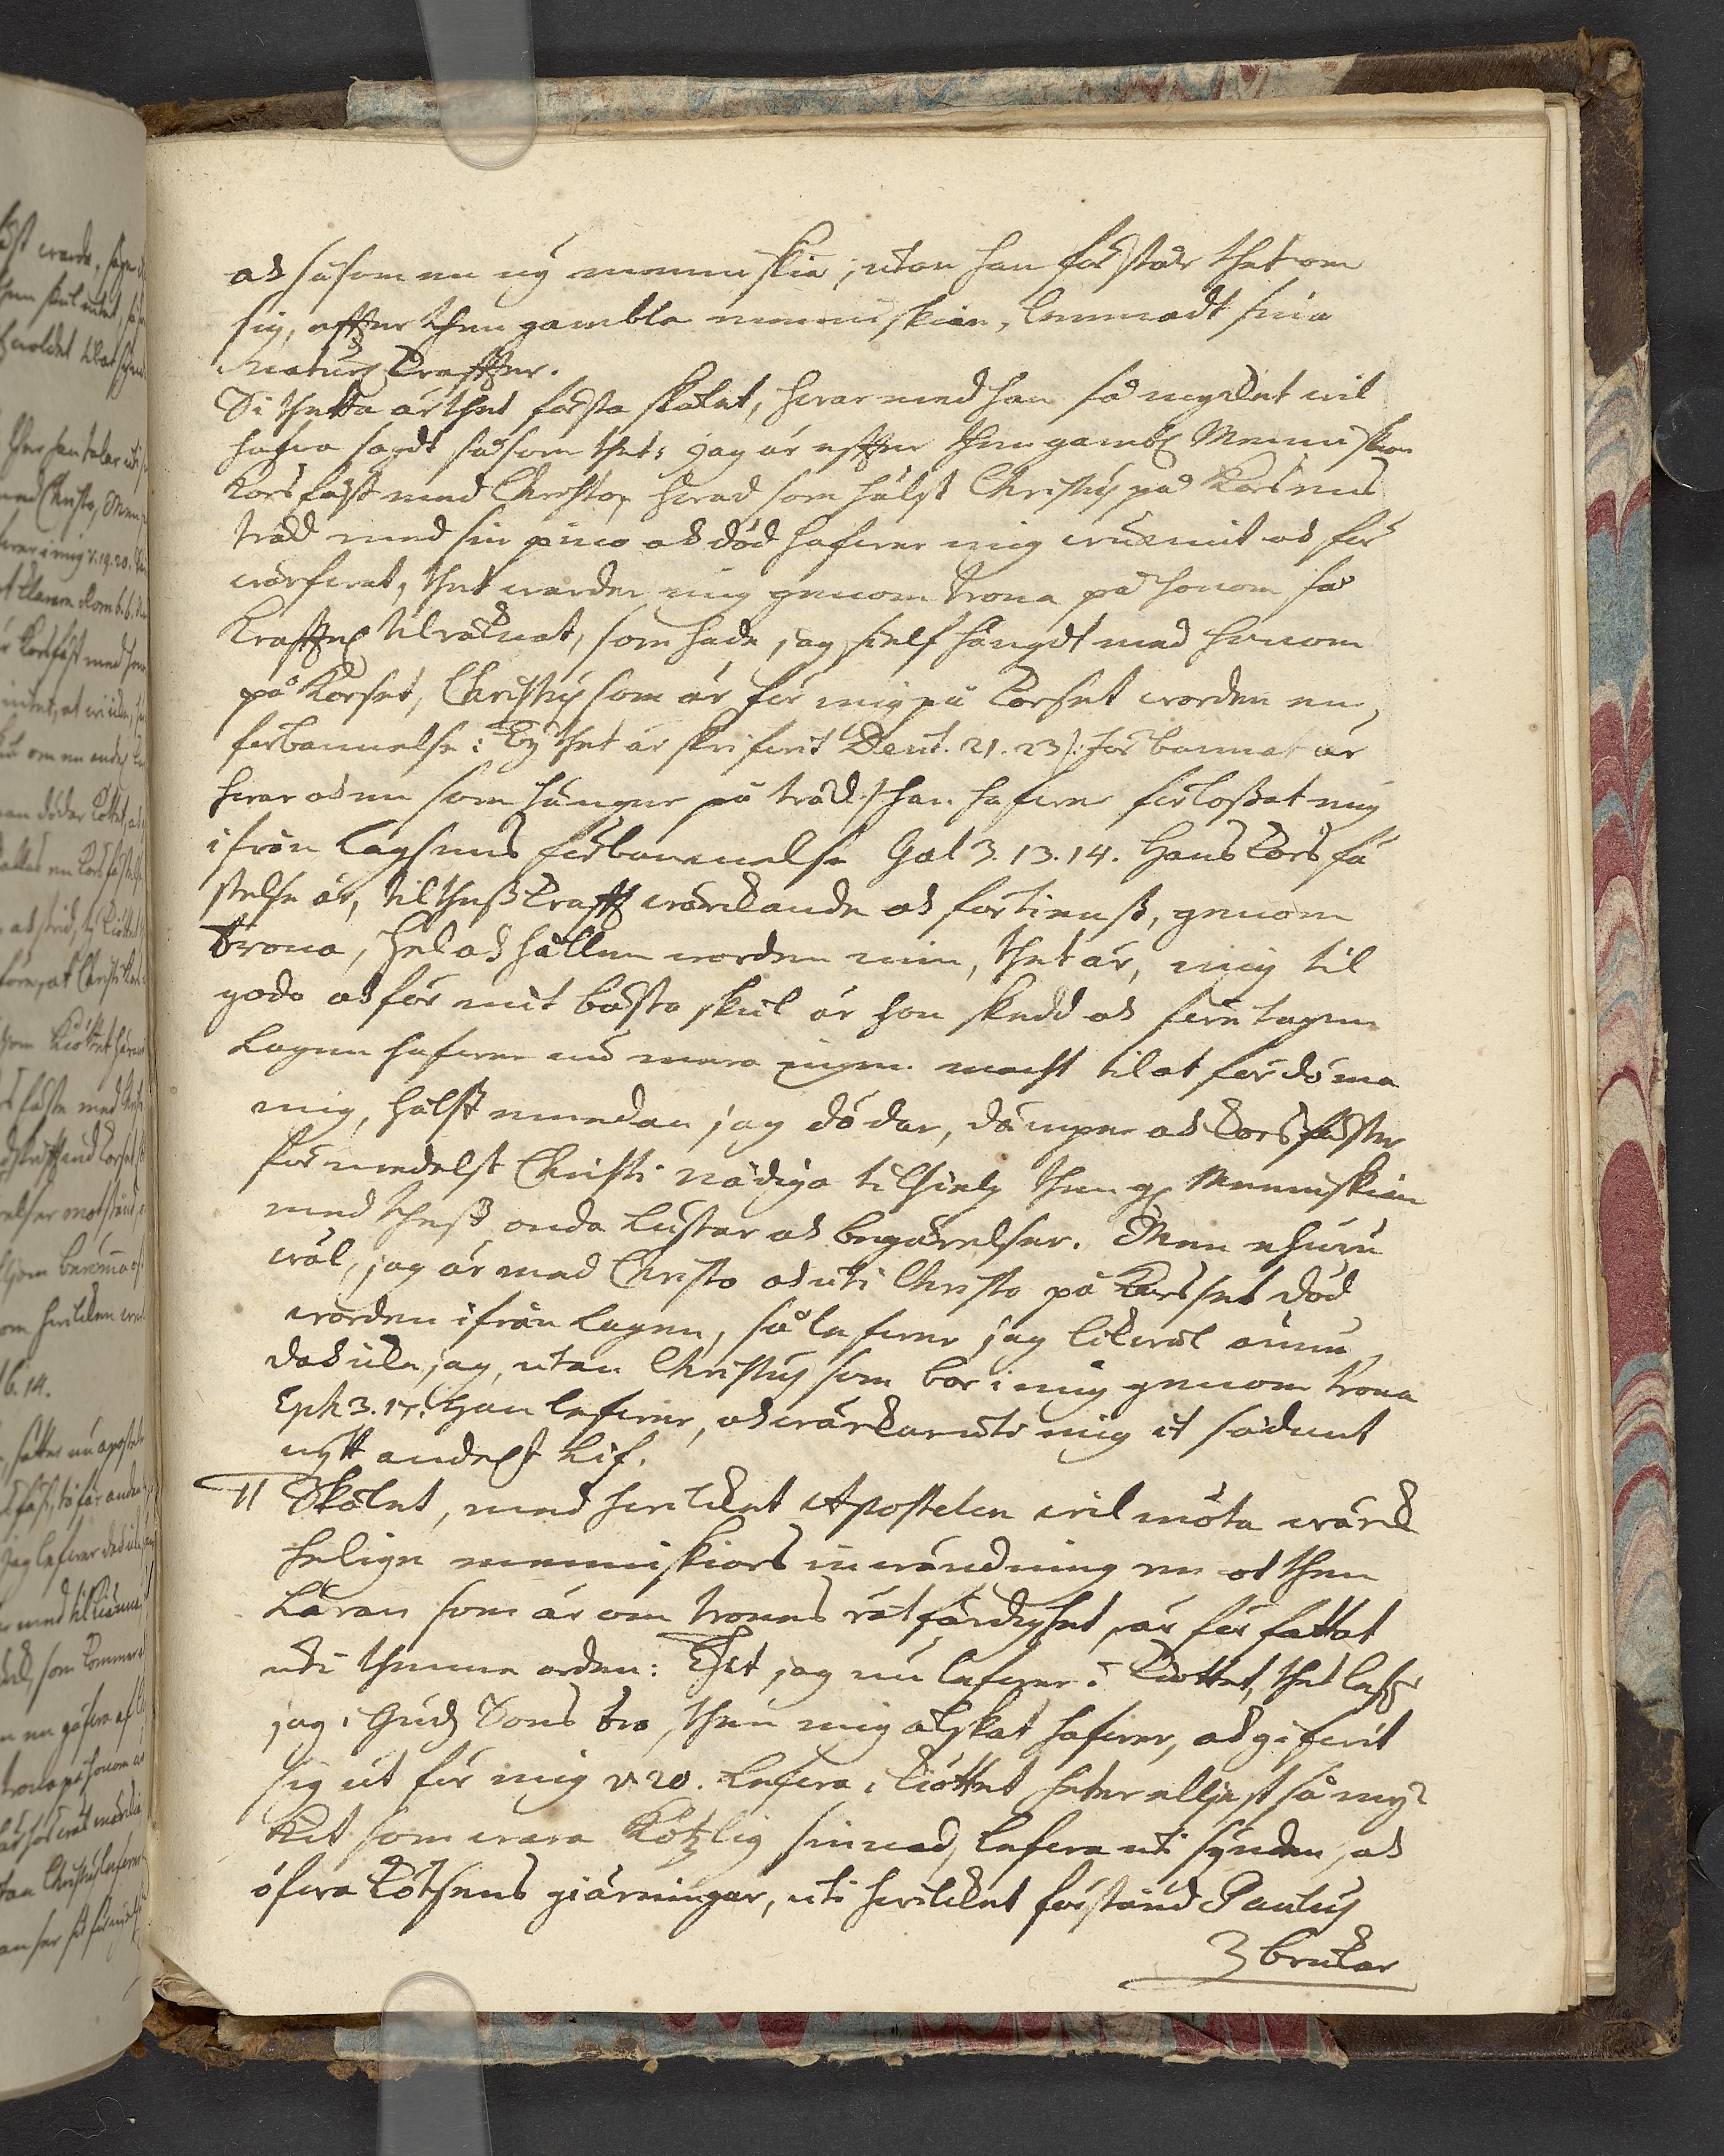 och såsom en ny menniskia; utan han förstår thet om
sig, effter then gambla menniskian, lemnadt sina
naturs kraffter.
Si thetta är thet första skälet, hvar med han så mycket vil
hafva sagdt såsom thet: jag är effter then gambl Menniskian
korsfäst med Christo, hvad som hälst Christus på korsens
träd med sin pino och död hafver mig vunnit och för
värfvat, thet varder mig genom trona på honom så
kraffteligen tilräknat, som hade jag sielf hängdt med honom
på korset, Christus som är för mig på korset vorden en
förbannelse: Ty thet är skrifvit Deut. 21. 23 /: förbannat är
hvar och en som hänger på träd :/ han hafver förlossat mig
ifrån lagsens förbannelse Gal 3. 13. 14. Hans korsfä
stelse är, til thess krafft värckande och förtienst, genom
trona, hel och hållen vorden min, thet är, mig til
godo och för mit bästa skul är hon skedd och företagen
Lagen hafver nu mera ingen macht til at fördöma
mig, hälst medan jag dödar, dämper och korsfäster
för medelst Christi nådiga tilhielp then gl Menniskian
med thess onda lustar och begärelser. Men ehuru
väl, jag är med Christo och uti Christo på Korsset död
vorden ifrån lagen, så lefver jag likväl ännu,
doch icke jag, utan Christus som bor i mig genom trona
Eph 3. 17. Han lefver, och värckar uti mig it sådant
nytt andeligt lif.
II Skälet, med hvilcket Apostelen vil möta värck
helige menniskiors invändning emot then
Läran som är om trones rätfärdighet, är författat
uti thenne orden: Thet jag nu lefver i kiöttet, thet lefver
jag i Guds Sons tro, then mig älskat hafver, och gifvit
sig ut för mig v. 20. Lefva i kiöttet heter elljest så my-
ket som vara kötzlig sinnad, lefva uti synden, och
öfva kötsens giärningar, uti hvilcket förstånd Paulus
brukar